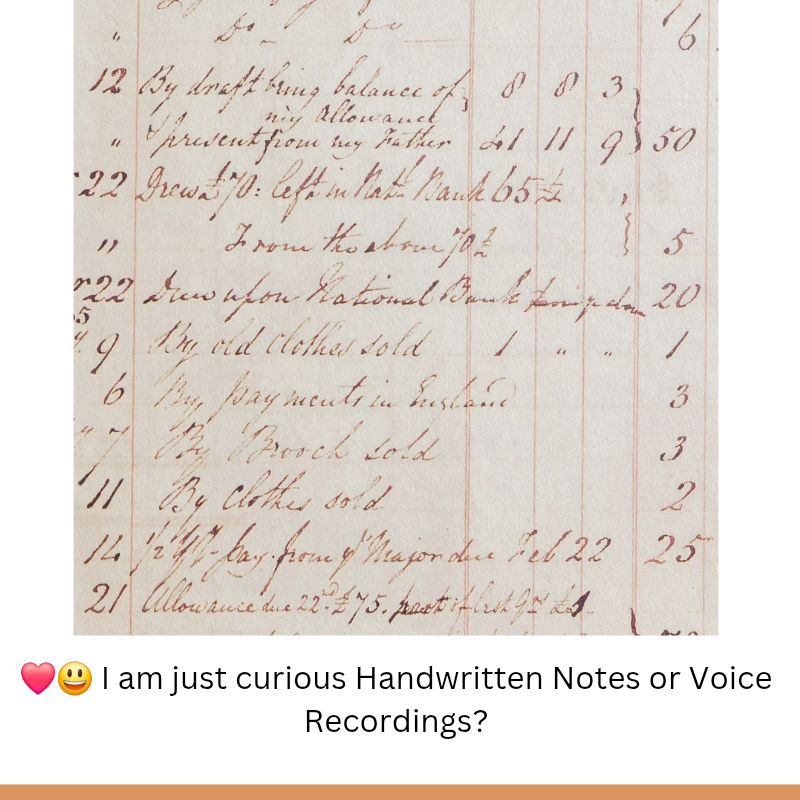 " Do - Do - 6
12 By draft being balance of 8 8 3
my Allowance
" & present from my Father 41 11 9 50
22 Drew £70: left in Natl. Bank 65 £
" From the above 70£ 5
22 Drew upon National Bank 20
5
9 By old clothes sold 1 " " 1
6 By payments in England 3
7 By Brooch sold 3
11 By clothes sold 2
14 1/2 Yr pay from ye Major due Feb 22 25
21 Allowance due 22nd £75. part of last Qr
❤️😃 I am just curious Handwritten Notes or Voice
Recordings?